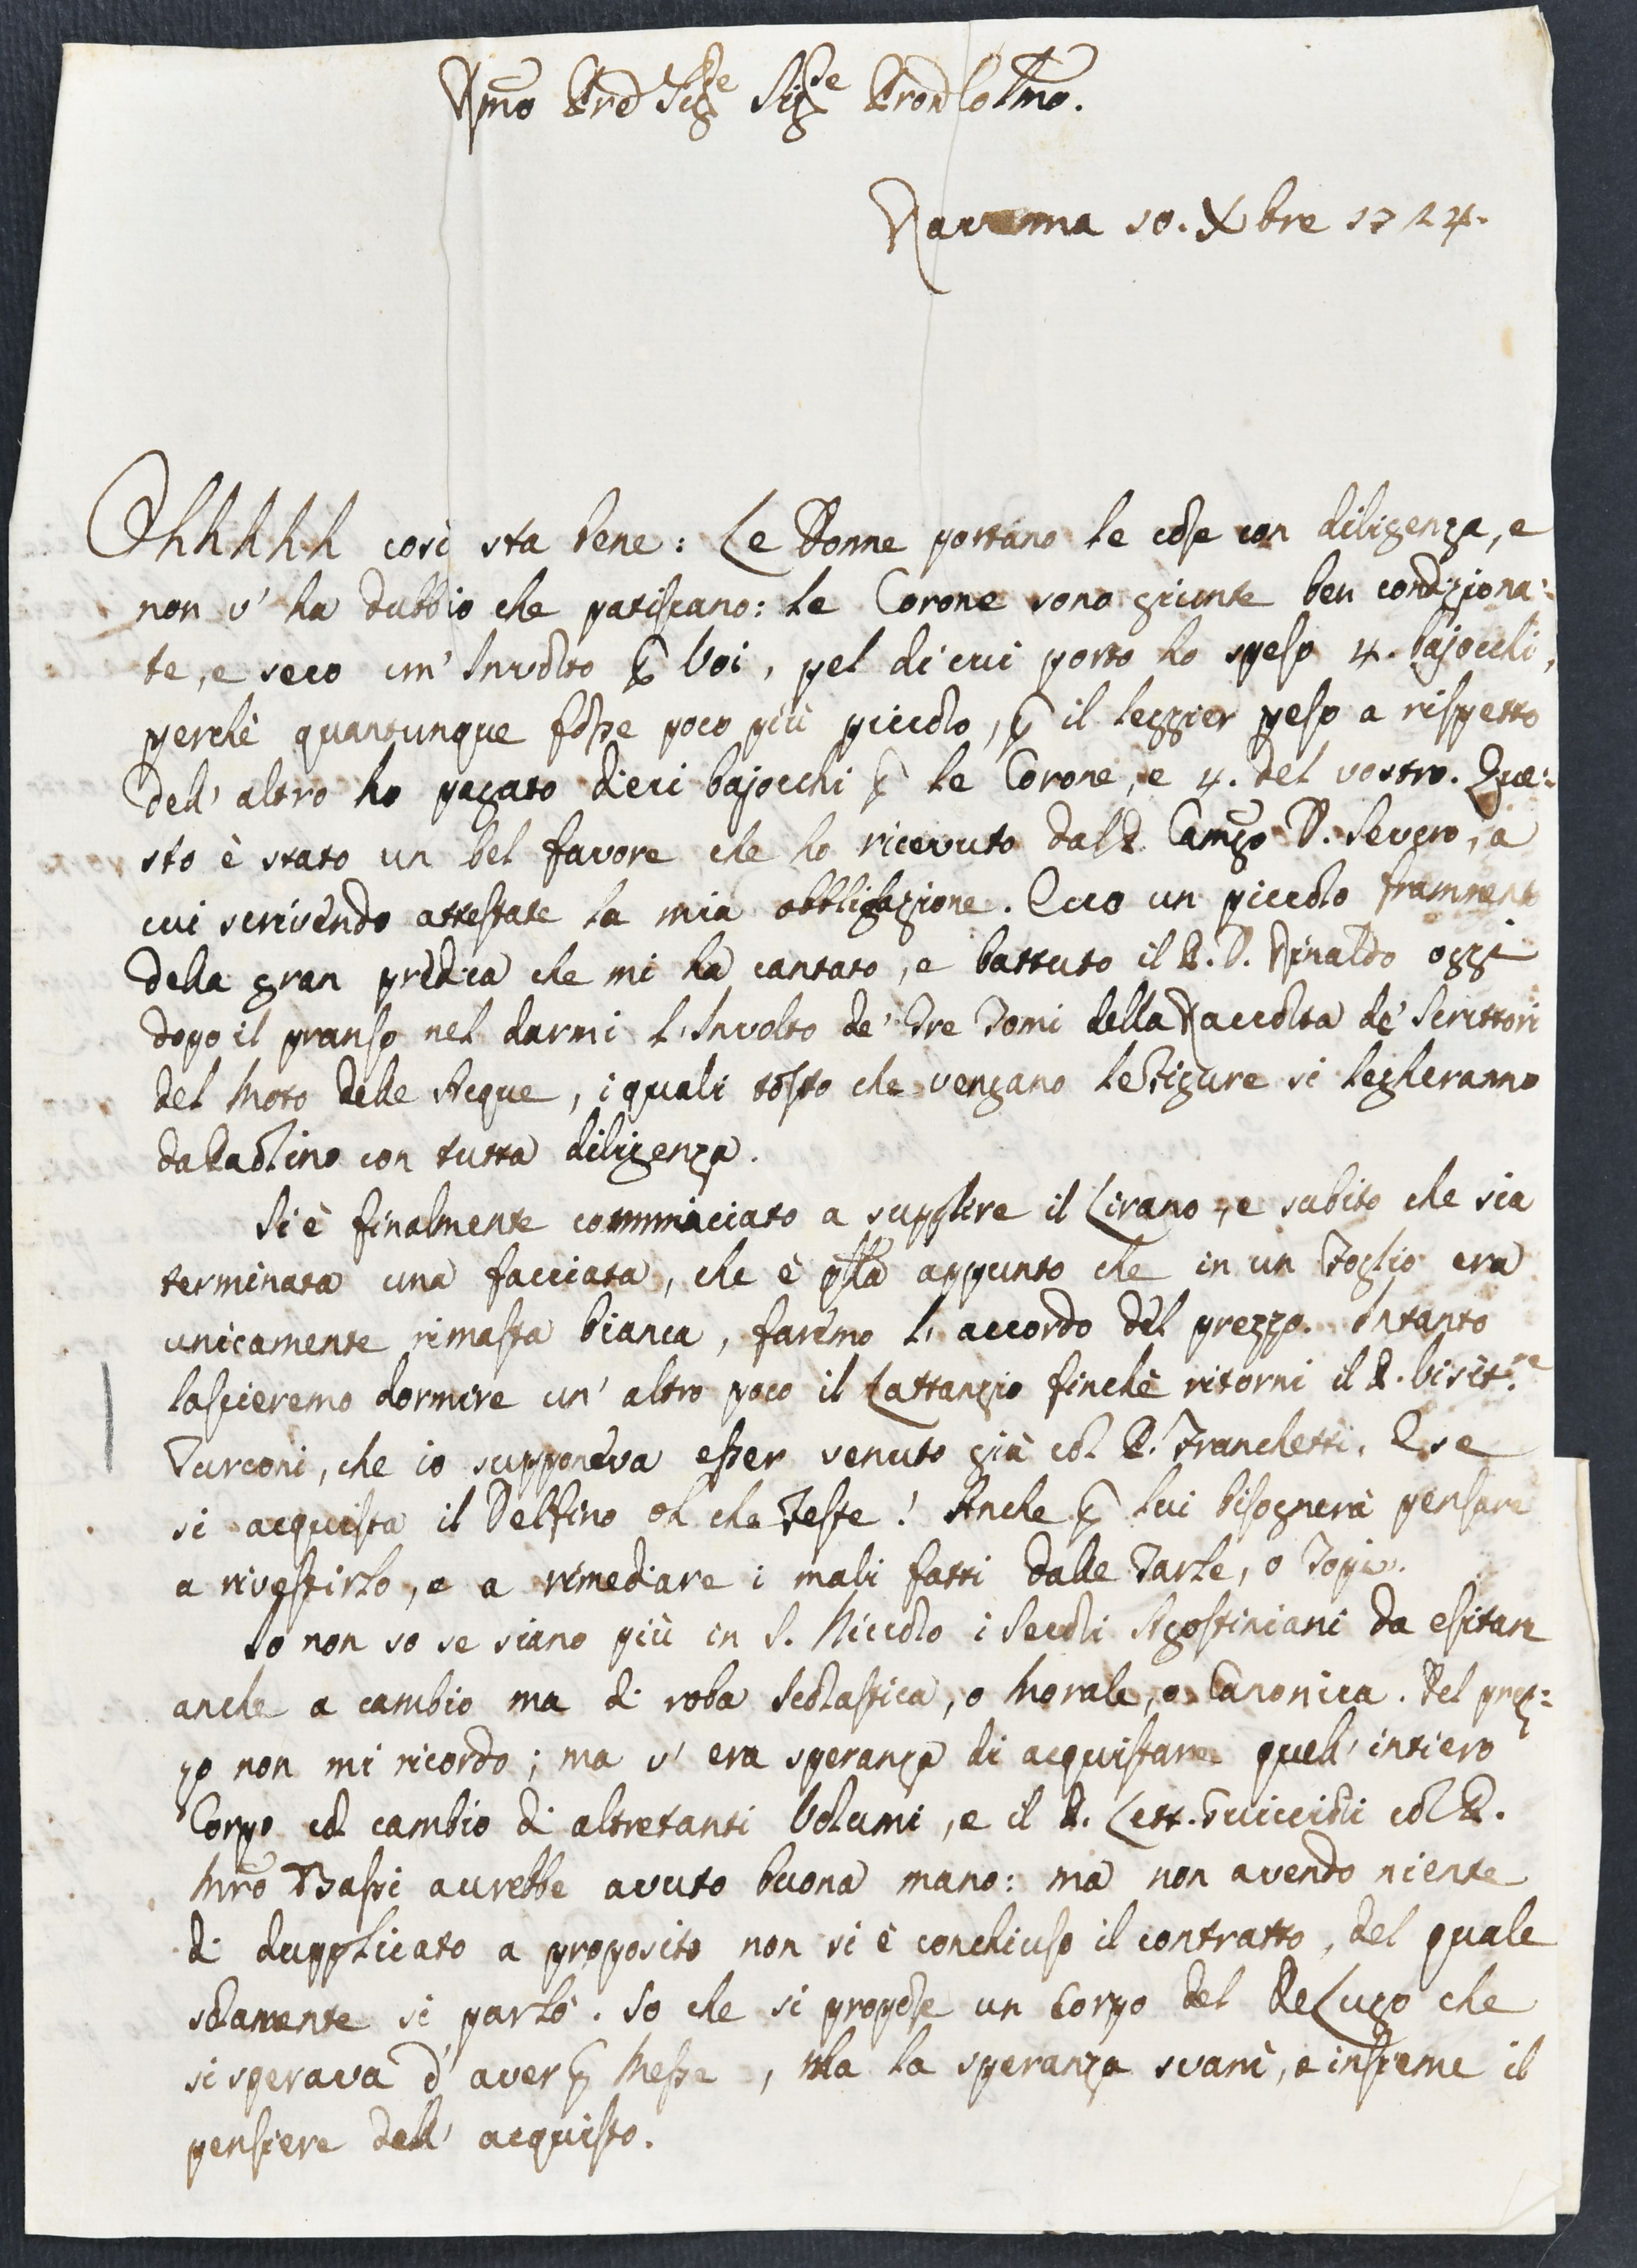 Rmo Pre Sigre Sigre Pron Colmo.
Ravenna 10. Xbre 1724.
Ohhhhh così sta bene: Le Donne portano le cose con diligenza, e
non v' ha dubbio che patiscano: le Corone sono giunte ben condiziona:
te, e seco un' Involto p Voi, pel di cui porto ho speso 4. bajocchi,
perchè quantunque fosse poco più piccolo, p il leggier peso a rispetto
dell' altro ho pagato dieci bajocchi p le Corone, e 4. del vostro. Que:
sto è stato un bel favore che ho ricevuto dal P. Camgo D. Severo, a
cui scrivendo attestate la mia obbligazione. Ecco un piccolo frammento
della gran predica che mi ha cantato, e battuto il P. D. Rinaldo oggi
dopo il pranso nel darmi l' Involto de' Tre Tomi della Raccolta de' Scrittori
del Moto delle Acque, i quali tosto che vengano le Figure si legheranno
da Paolino con tutta diligenza.
Si è finalmente comminciato a supplire il Lirano, e subito che sia
terminata una facciata, che è qlla appunto che in un Foglio era
unicamente rimasta bianca, faremo l' accordo del prezzo. Intanto
lascieremo dormire un' altro poco il Lattanzio finchè ritorni il P. Visitre
Turconi, che io supponeva esser venuto già col P. Franchetti. E se
si acquista il Delfino oh che Feste! Anche p lui bisognerà pensare
a rivestirlo, e a rimediare i mali fatti dalle Tarle, o Topi.
Io non so se siano più in S. Niccolo i Secoli Agostiniani da esitare
anche a cambio ma di roba Scolastica, o Morale, o Canonica. Del prez:
zo non mi ricordo; ma v' era speranza di acquistare quell' intiero
Corpo col cambio di altretanti Volumi, e il P. Lett. Guiccioli col P.
Mro Bassi avrebbe avuto buona mano: ma non avendo niente
di dupplicato a proposito non si è conchiuso il contratto, del quale
solamente si parlò. So che si propose un Corpo del De Lugo che
si sperava d' aver p Messe, Ma la speranza svanì, e insieme il
pensiere dell' acquisto.